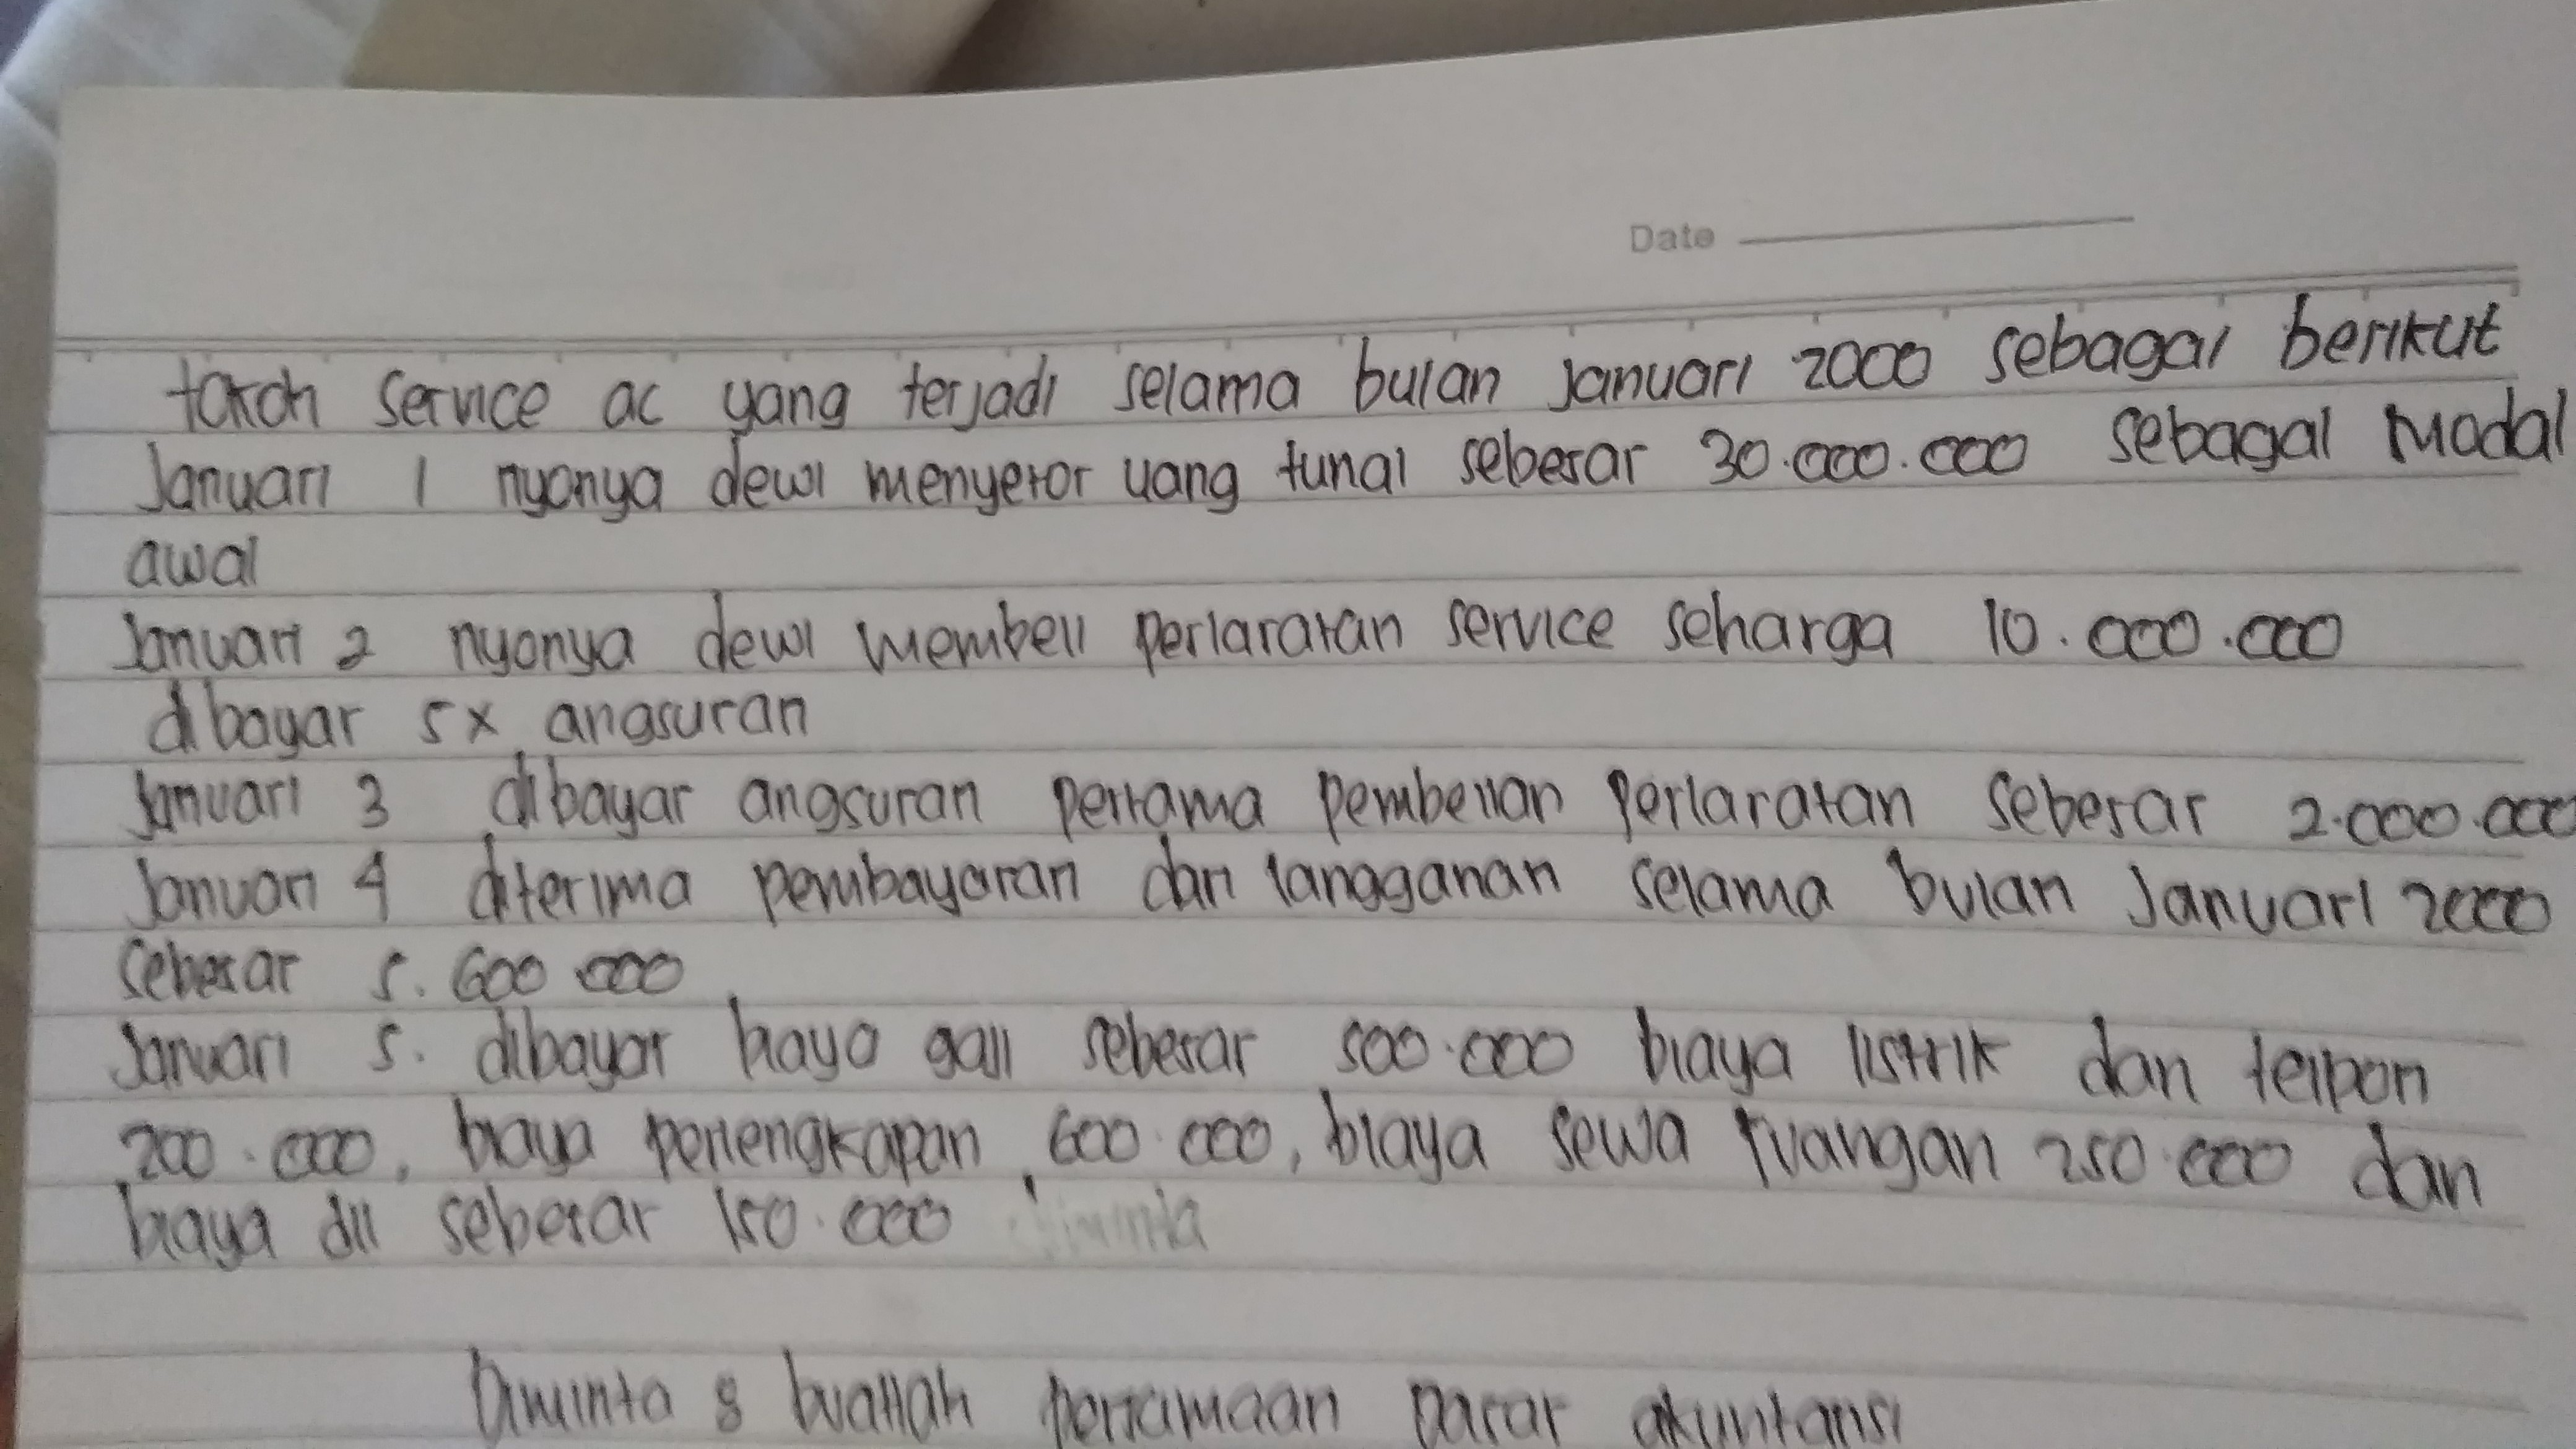 Date
tokoh service ac yang terjadi selama bulan januari 2000 sebagai berikut
Januari 1 nyonya dewi menyetor uang tunai sebesar 30.000.000 sebagai Modal
awal
Januari 2 nyonya dewi membeli perlaratan service seharga 10.000.000
dibayar 5x angsuran
Januari 3 dibayar angsuran pertama pembelian perlaratan sebesar 2.000.000
Januari 4 diterima pembayaran dari langganan selama bulan Januari 2000
sebesar 5.600 000
Januari 5. dibayar biaya gaji sebesar 500.000 biaya listrik dan telpon
200.000, biaya perlengkapan 600.000, biaya sewa ruangan 250.000 dan
biaya dll sebesar 150.000 diminta
Diminta 8 buatlah persamaan dasar akuntansi